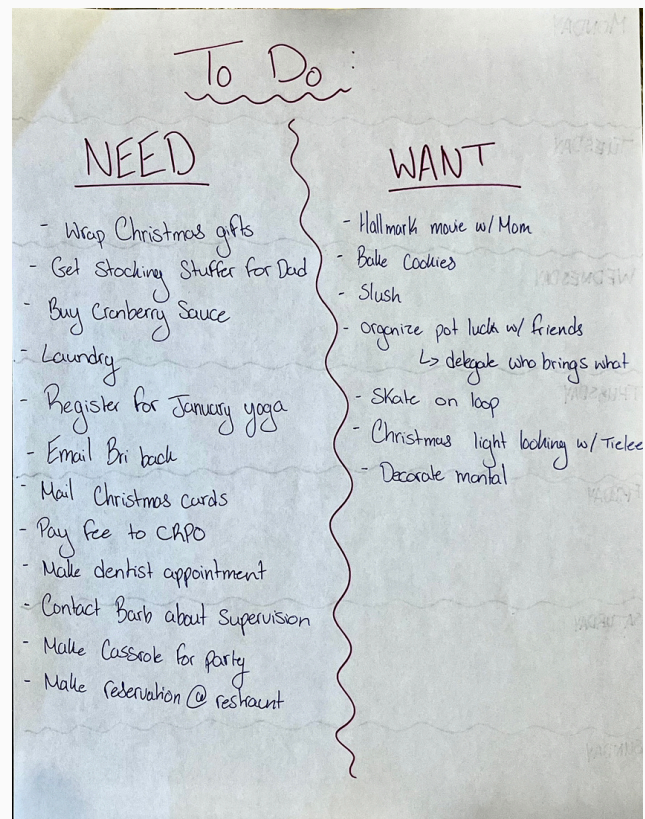 To Do :
NEED
- Wrap Christmas gifts
- Get Stocking Stuffer for Dad
- Buy Cranberry Sauce
- Laundry
- Register for January yoga
- Email Bri back
- Mail Christmas cards
- Pay fee to CRPO
- Make dentist appointment
- Contact Barb about Supervision
- Make Cassrole for party
- Make reservation @ restraunt
WANT
- Hallmark movie w/ Mom
- Bake Cookies
- Slush
- organize pot luck w/ friends
↳ delegate who brings what
- Skate on loop
- Christmas light looking w/
- Decorate mantal
MONDAY
TUESDAY
WEDNESDAY
THURSDAY
FRIDAY
SATURDAY
SUNDAY